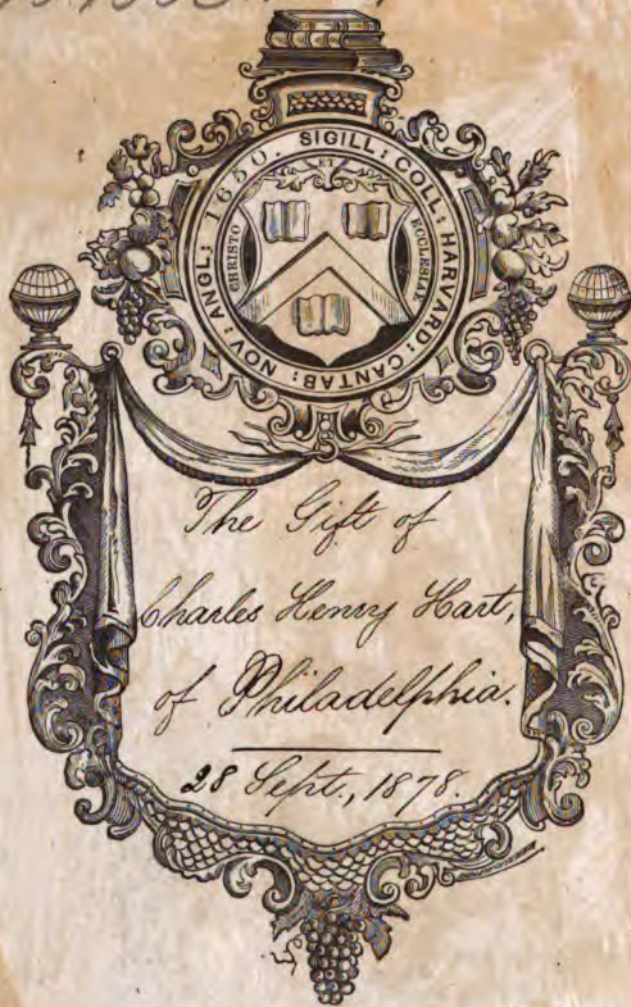 SIGILL: COLL: HARVARD: CANTAB: NOV: ANGL: 1650.
CHRISTO
ET
ECCLESIAE
The Gift of
Charles Henry Hart,
of Philadelphia.
28 Sept., 1878.